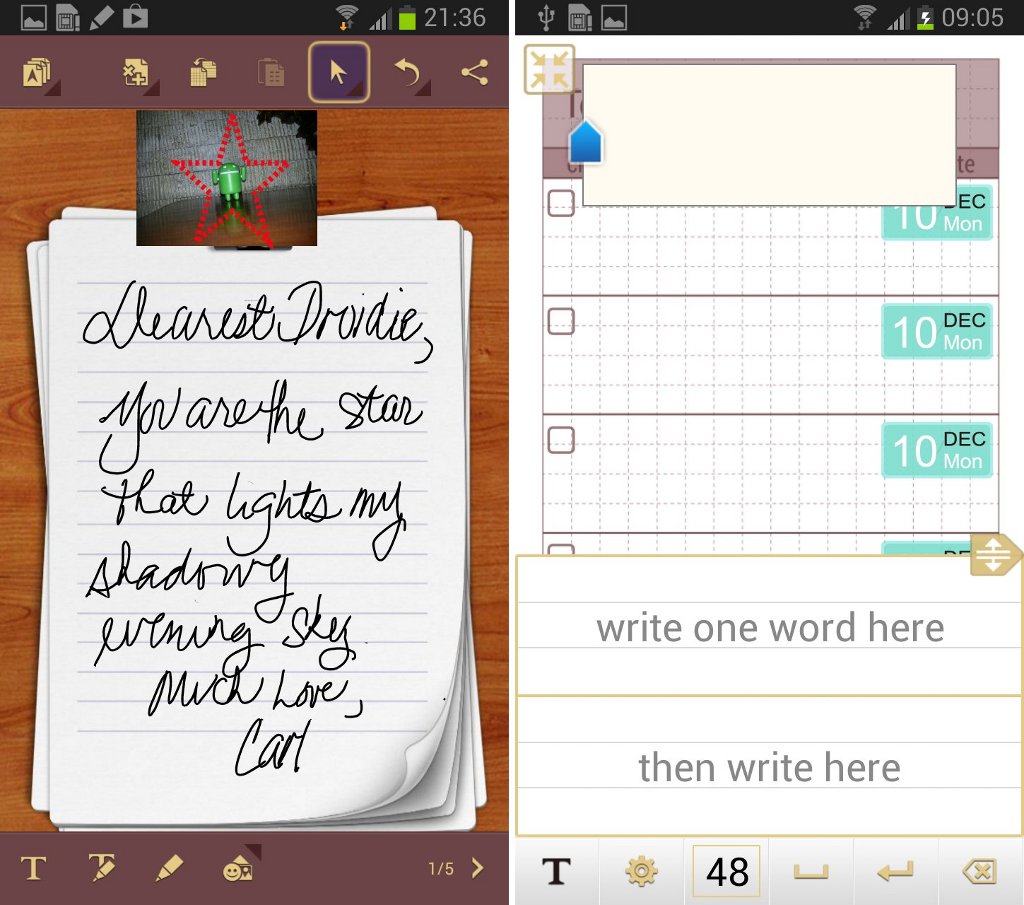 21:36
Dearest Droidie,
You are the star
that lights my
shadowy
evening sky.
Much Love,
Carl
T
T
1/5
09:05
te
10 DEC
Mon
10 DEC
Mon
10 DEC
Mon
write one word here
then write here
T
48